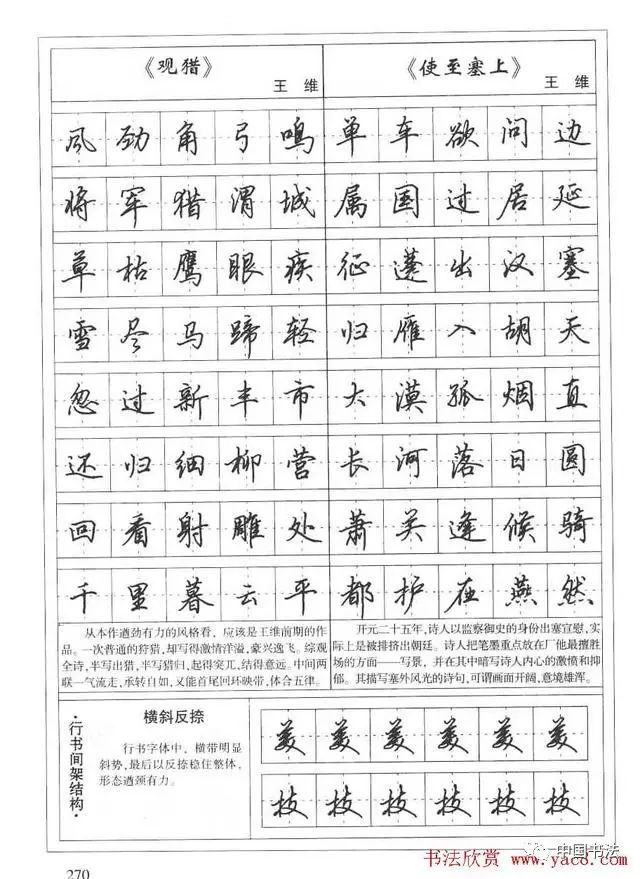 《观猎》
王维
風劲角弓鸣
将军猎渭城
草枯鹰眼疾
雪尽马蹄轻
忽过新丰市
还归细柳营
回看射雕处
千里暮云平
从本作遒劲有力的风格看，应该是王维前期的作
品。一次普通的狩猎，却写得激情洋溢，豪兴逸飞。综观
全诗，半写出猎，半写猎归，起得突兀，结得意远。中间两
联一气流走，承转自如，又能首尾回环映带，体合五律。
《使至塞上》
王维
单车欲问边
属国过居延
征蓬出汉塞
归雁入胡天
大漠孤烟直
长河落日圆
萧关逢候骑
都护在燕然
开元二十五年，诗人以监察御史的身份出塞宣慰，实
际上是被排挤出朝廷。诗人把笔墨重点放在厂他最擅胜
场的方面——写景，并在其中暗写诗人内心的激愤和抑
郁。其描写塞外风光的诗句，可谓画面开阔，意境雄浑。
·行书间架结构·
横斜反捺
行书字体中，横带明显
斜势，最后以反捺稳住整体，
形态遒颈有力。
美美美美美美
技技技技技技
中国书法
书法欣赏 www.yac8.com
270